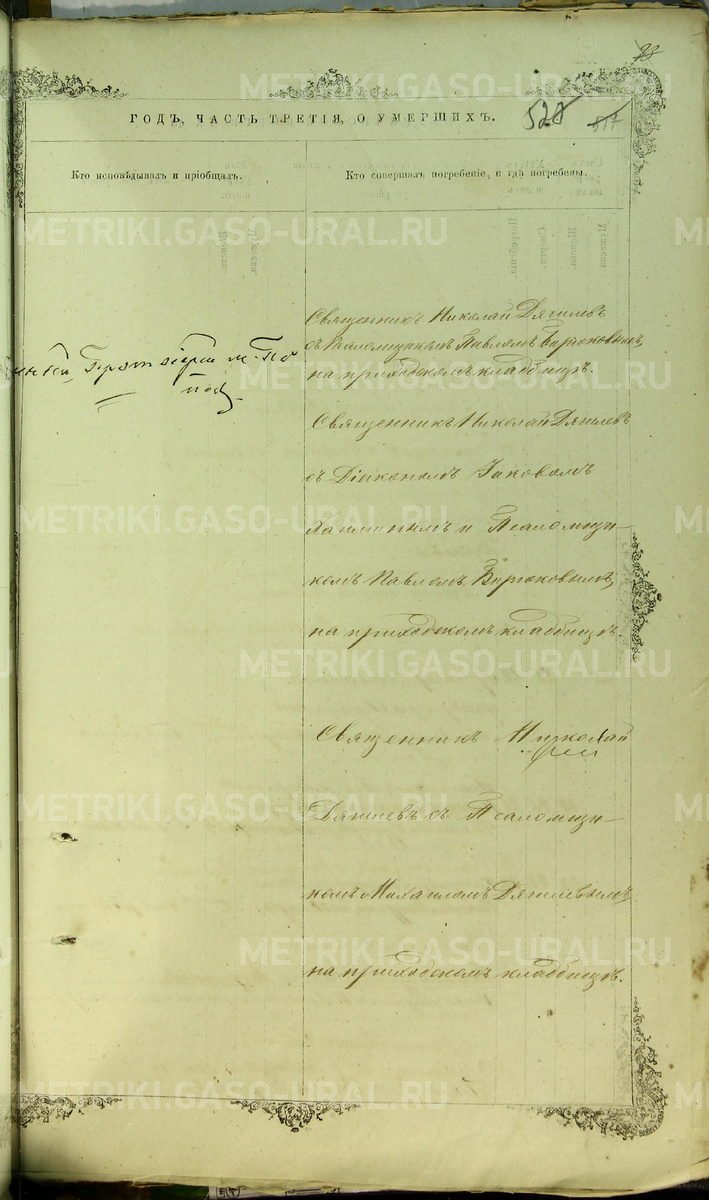 ГОДЪ, ЧАСТЬ ТРЕТІЯ, О УМЕРШИХЪ.
528 517
Кто исповѣдывалъ и пріобщалъ.
Кто совершалъ погребеніе, и гдѣ погребены.
Священникъ Николай Дягилевъ
съ Псаломщикомъ Павломъ Бирюковымъ,
на приходскомъ кладбищѣ.
Священникъ Николай Дягилевъ
съ Діакономъ Іаковомъ
и Псаломщи-
комъ Павломъ Бирюковымъ,
на приходскомъ кладбищѣ.
Священникъ Николай
Дягилевъ съ Псаломщи-
комъ Михаиломъ Дягилевымъ,
на приходскомъ кладбищѣ.
METRIKI.GASO-URAL.RU